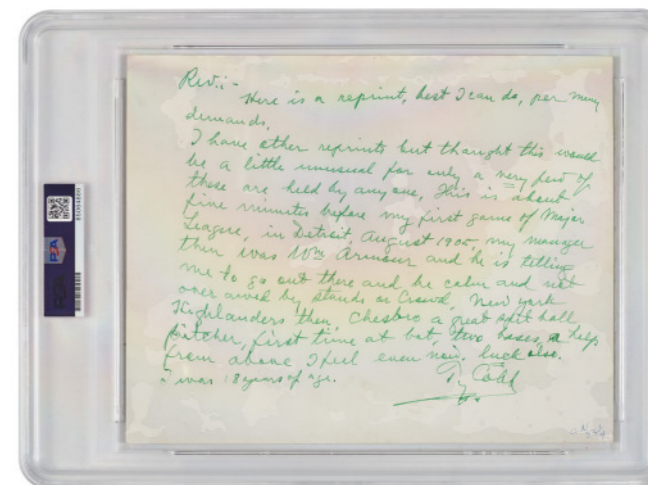 Rev::-
Here is a reprint, best I can do, per many
demands.
I have other reprints but thought this would
be a little unusual for only a very few of
these are held by anyone, This is about
five minutes before my first game of Major
League, in Detroit, August 1905, my manager
then was Wm Armour and he is telling
me to go out there and be calm and not
over awed by stands or Crowd, New York
Highlanders then, Chesbro a great spit ball
pitcher, first time at bat, two bases, a help
from above I feel even now. luck also.
I was 18 years of age.
Ty Cobb
PSA